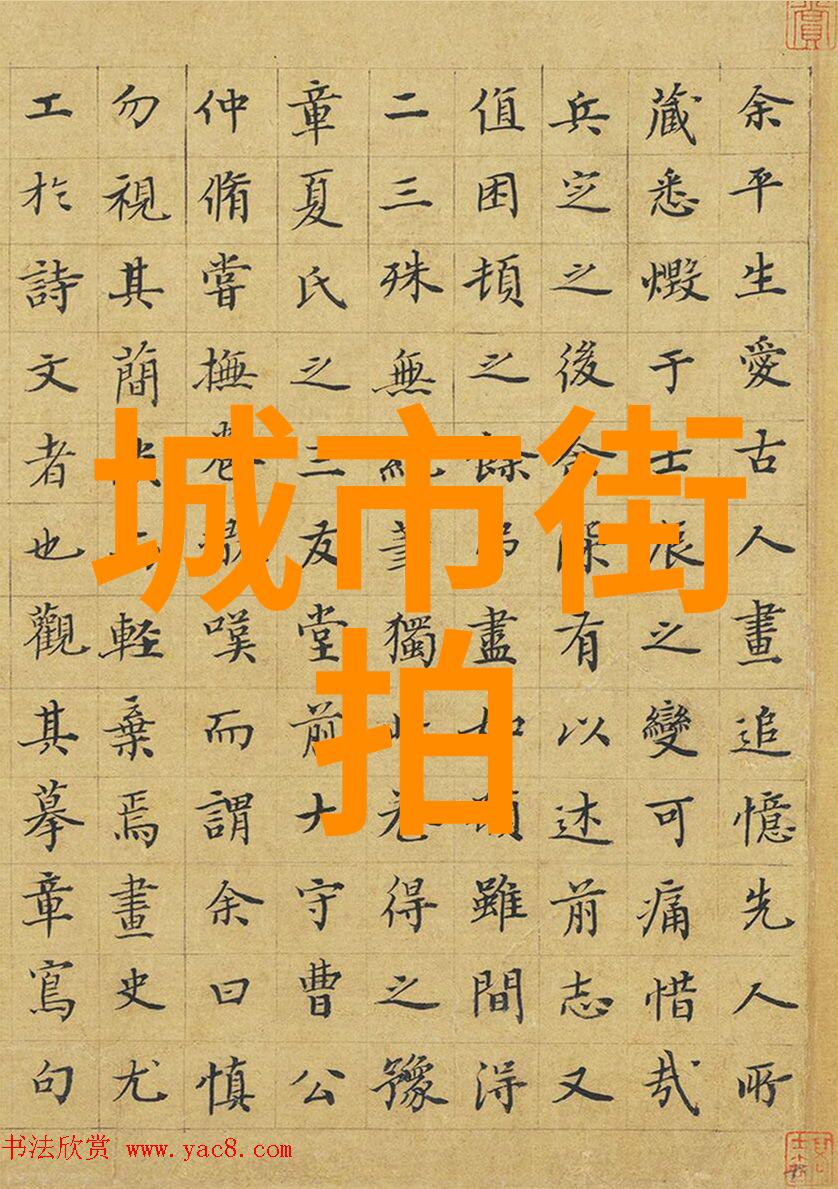 余平生愛古人畫追憶先人所
藏悉燬于壬辰之變可痛惜哉
兵定之後有以述前志又
值困頓之餘盡如雖間得
二三殊無絕筆獨此卷得之豫
章夏氏之三友堂前大守曹公
仲脩嘗撫卷嘆而謂余曰慎
勿視其簡輕棄焉畫史尤
工於詩文者也觀其摹章寫句
城市街
拍
书法欣赏 www.yac8.com